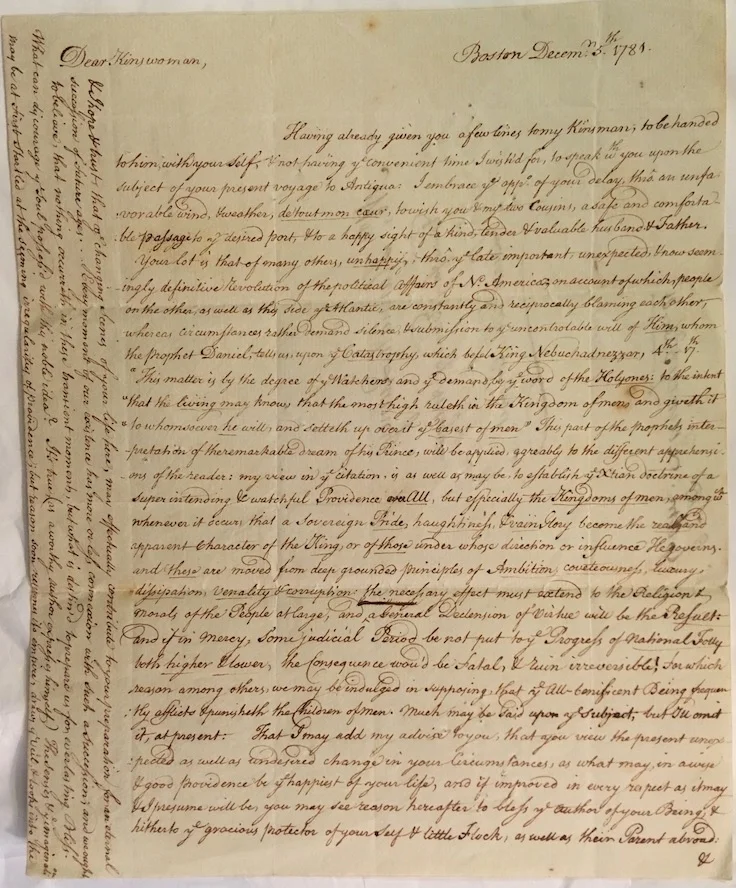 Boston Decem.r 5.th 1781.
Dear Kinswoman,
Having already given you a few lines to my Kinsman, to be handed
to him, with your Self, & not having ye convenient time I wish'd for, to speak to you upon the
subject of your present voyage to Antigua: I embrace ye oppy. of your delay, thrō an unfa-
vorable wind, & weather, de tout mon cœur, to wish you & my two Cousins, a safe and comforta-
ble passage to ye desired port, & to a happy sight of a kind, tender & valuable husband & Father.
Your lot is that of many others, unhappy, thrō ye late important, unexpected, & now seem-
ingly definitive Revolution of the political affairs of No. America, on account of which, people
on the other, as well as this side ye Atlantic, are constantly and reciprocally blaming each other,
whereas circumstances rather demand silence, & submission to ye uncontrolable will of Him, whom
the Prophet Daniel, tells us, upon ye Catastrophy, which befel King Nebuchadnezzar, 4th. 17.
"This matter is by the degree of ye Watchers, and ye demand, by ye word of the Holy ones: to the intent
"that the living may know, that the most high ruleth in the Kingdom of men, and giveth it
"to whomsoever he will, and setteth up over it ye basest of men" This part of the Prophets inter-
pretation of the remarkable dream of this Prince, will be applied, agreably to the different apprehensi-
ons of the reader: my view in ye citation, is as well as may be, to establish ye Xtian doctrine of a
super intending & watchful Providence over All, but especially the Kingdoms of men, among wc.
whenever it occurs, that a Sovereign Pride, haughtiness, & vain Glory become the real and
apparent Character of the King, or of those under whose direction or influence He governs.
and these are moved from deep grounded principles of Ambition, coveteousness, luxury,
dissipation, venality & corruption: the necessary effect must extend to the Religion &
morals of the People at large, and a General Declension of Virtue will be the Result:
and if in Mercy, some judicial Period be not put to ye Progress of National Folly
both higher & lower, the Consequence wou'd be Fatal, & ruin irreversible! For which
reason among others, we may be indulged in supposing, that ye All-benificent Being frequen
tly afflicts & punisheth the Children of men. Much may be Said upon ye Subject, but I'll omit
it, at present: That I may add my advice to you, that you view the present unex-
pected as well as undesired change in your Circumstances, as what may, in a wise
& good providence be ye happiest of your life, and if improved in every respect as it may
& I presume will be, you may see reason hereafter to bless ye author of your Being, &
hitherto ye gracious protector of your Self & little Flock, as well as their Parent abroad:
&
& I hope & trust, that ye changing scenes of your life here, may effectually contribute to your preparation for an eternal
succession of future ages: Every moment of our existence has more or less connexion with such a succession, and we ought
to believe, that nothing occurs to us in these transient moments, but what is design'd to prepare us for everlasting Bliss.
What can discourage ye Soul possess'd with this noble idea? It's true (as a worthy author expresses himself) The senses & imagination
may be at first startled at the seeming irregularity of providence; but reason soon resumes its empire, draws ye veil, & looks into the